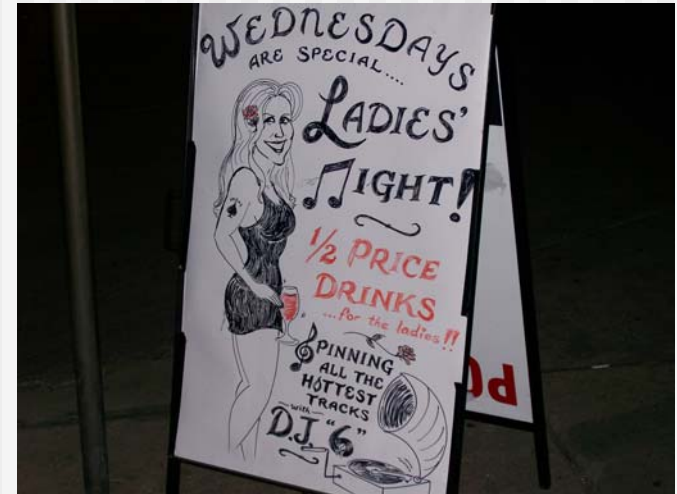 WEDNESDAYS
ARE SPECIAL....
LADIES'
NIGHT!
1/2 PRICE
DRINKS
...for the ladies!!
SPINNING
ALL THE
HOTTEST
TRACKS
—with—
D.J. "6"